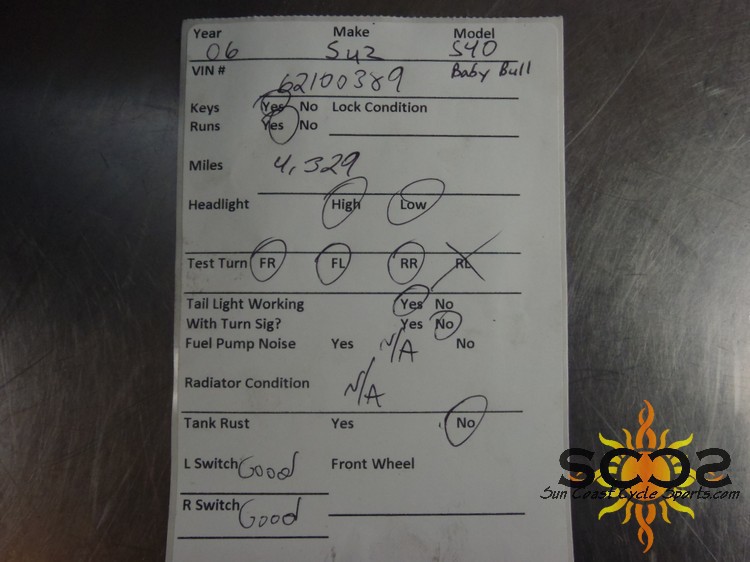 Year Make Model
06 Suz S40
VIN # Baby Bull
62100389
Keys Yes No Lock Condition
Runs Yes No
Miles 4,329
Headlight High Low
Test Turn FR FL RR RL
Tail Light Working Yes No
With Turn Sig? Yes No
Fuel Pump Noise Yes N/A No
Radiator Condition N/A
Tank Rust Yes No
L Switch Good Front Wheel
R Switch Good
SCCS
Sun Coast Cycle Sports.com